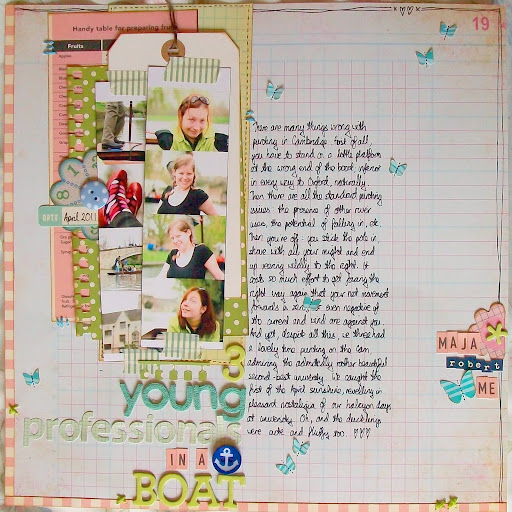 19
Handy table for preparing fruit
Fruits
Apples
A
April 2011
There are many things wrong with
punting in Cambridge. First of all,
you have to stand on a little platform
at the wrong end of the boat, inferior
in every way to Oxford, naturally.
Then there are all the standard punting
issues: the presence of other river
users, the potential of falling in, etc.
Then you're off - you stick the pole in,
shove with all your might and end
up veering wildly to the right. It
costs so much effort to get facing the
right way again that your net movement
forwards is zero, or even negative if
the current and wind are against you.
And yet, despite all this, we three had
a lovely time punting on the Cam,
admiring the admittedly rather beautiful
second-best university. We caught the
first of the April sunshine, revelling in
pleasant nostalgia of our halcyon days
at university. Oh, and the ducklings
were cute and fluffy too.
MAJA
robert
ME
3
young
professionals
IN A
BOAT